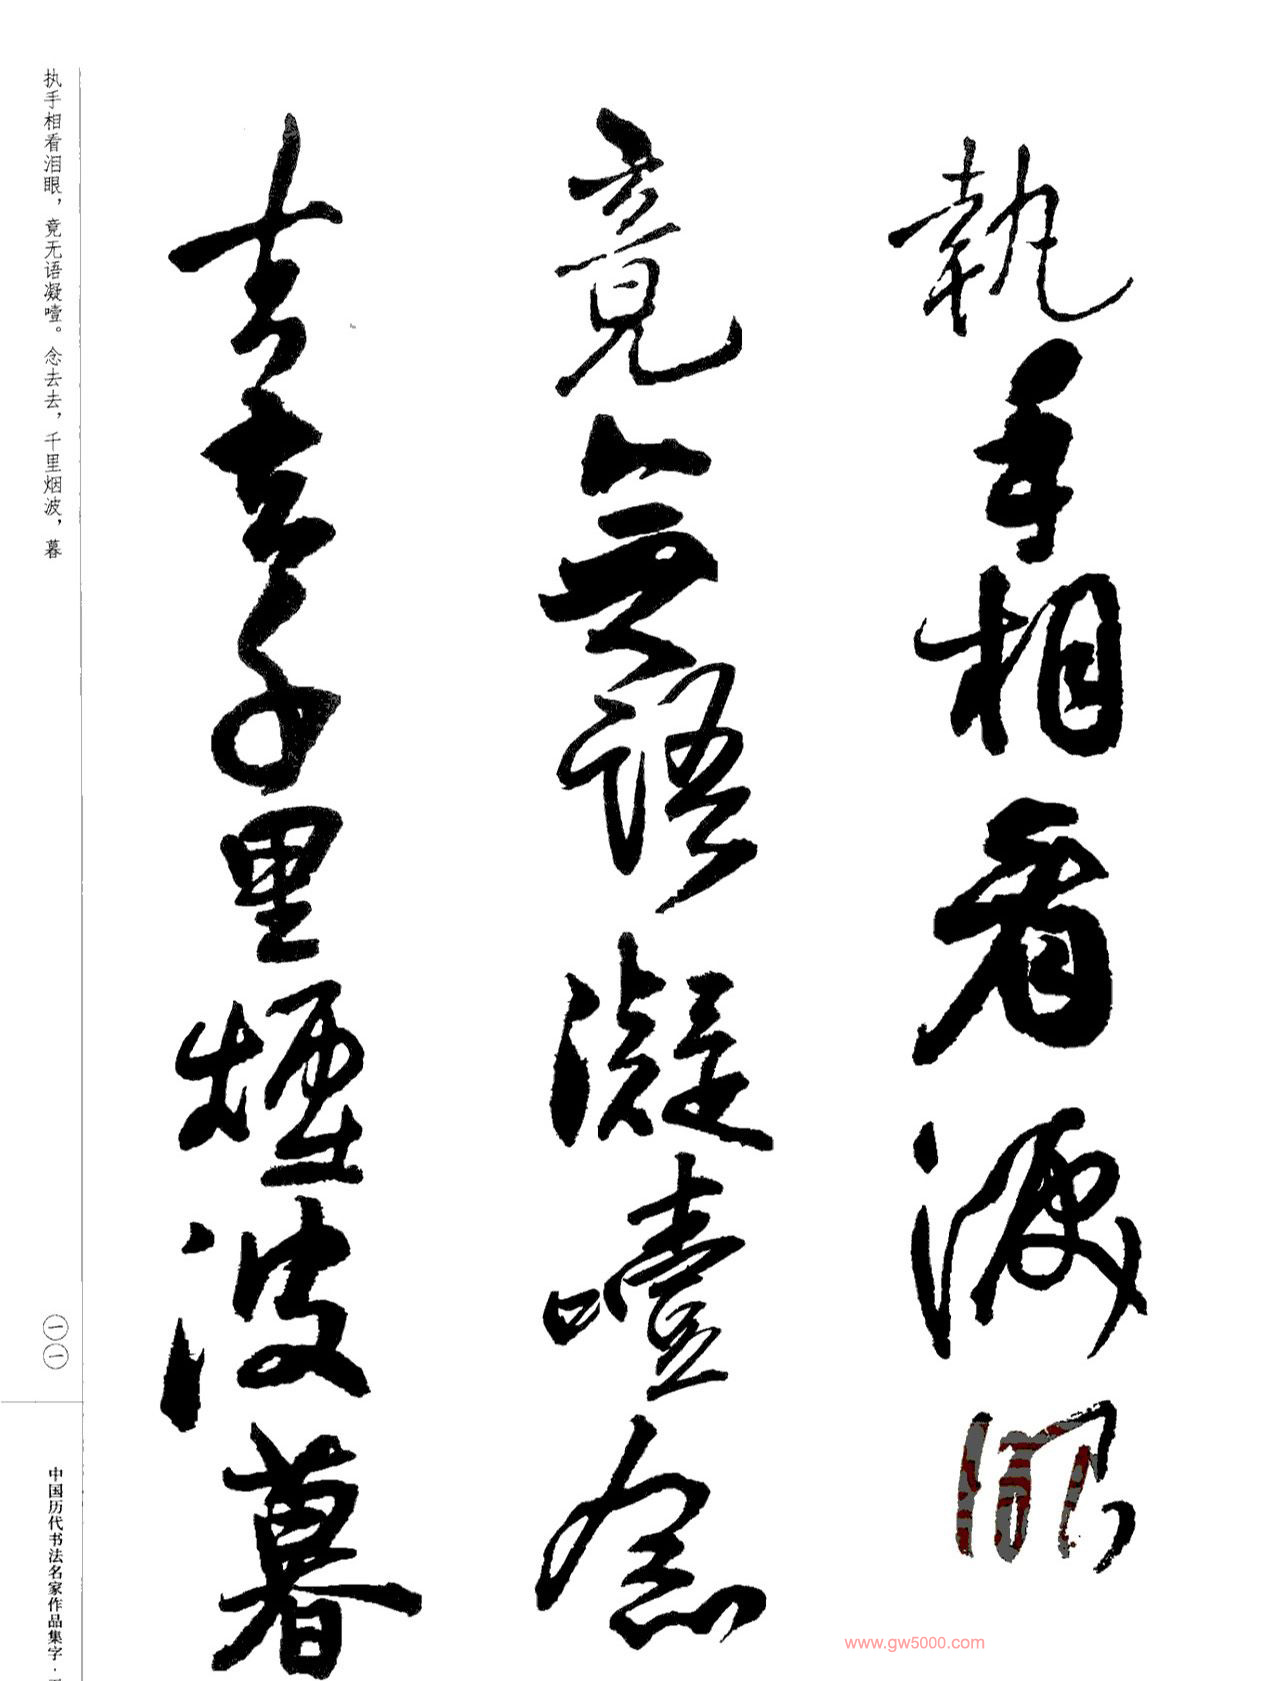 執手相看淚眼
竟無語凝噎念
去去千里煙波暮
执手相看泪眼，竟无语凝噎。念去去，千里烟波，暮
一一
中国历代书法名家作品集字·
www.gw5000.com